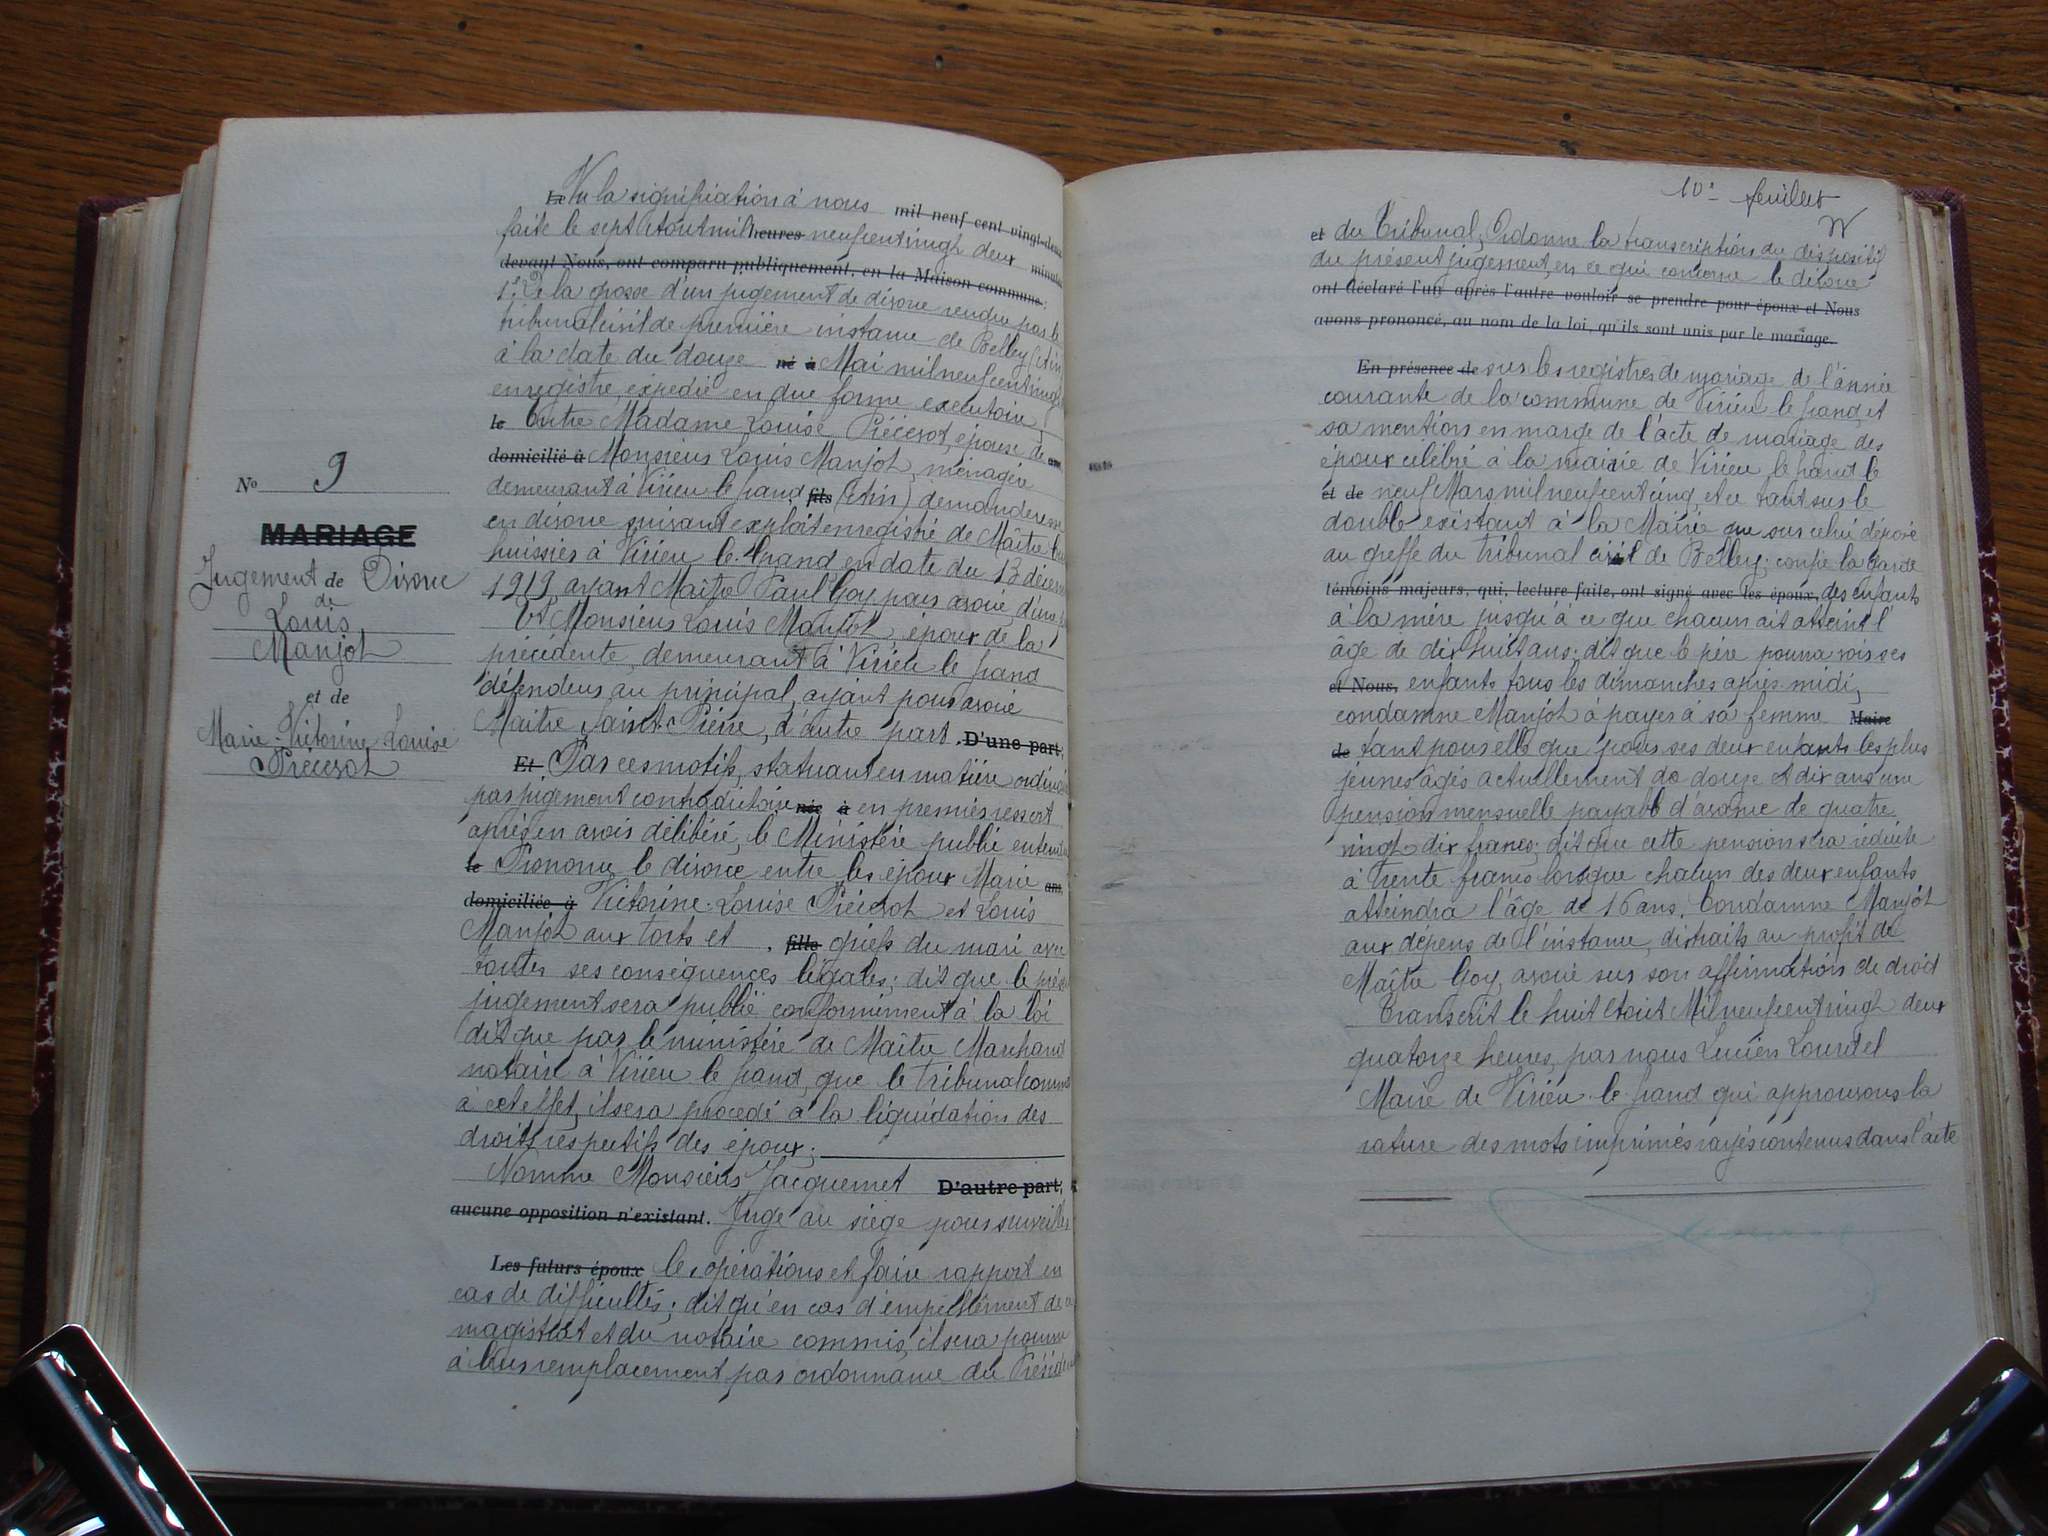 Le Vu la signification à nous mil neuf cent vingt-deux
faite le sept Août mil heures neuf cent vingt deux minutes
devant Nous, ont comparu publiquement, en la Maison commune:
1° De la grosse d'un jugement de divorce rendu par le
tribunal civil de première instance de Belley (Ain)
à la date du douze né à Mai mil neuf cent vingt
enregistré, expédié en due forme exécutoire,
le Entre Madame Louise Précerot, épouse de
domicilié à Monsieur Louis Manjot, ménagère
demeurant à Virieu le grand fils (Ain) demanderesse
en divorce suivant exploit enregistré de Maître
huissier à Virieu le Grand en date du 13 décem
1919, ayant Maître Paul Goy pour avoué d'une
Et Monsieur Louis Manjot, époux de la
précédente, demeurant à Virieu le grand
défendeur au principal, ayant pour avoué
Maître Saint-Pierre, d'autre part. D'une part;
Et Par ces motifs, statuant en matière ordinai
par jugement contradictoire née à en premier ressort
après en avoir délibéré, le Ministère public entendu
le Prononce le divorce entre les époux Marie
domiciliée à Victorine Louise Précerot et Louis
Manjot aux torts et fille griefs du mari avec
toutes ses conséquences légales; dit que le prés
jugement sera publié conformément à la loi
dit que par le ministère de Maître Marchand
notaire à Virieu le grand, que le tribunal comm
à cet effet, il sera procédé à la liquidation des
droits respectifs des époux;
Nomme Monsieur Jacquemet D'autre part;
aucune opposition n'existant. Juge au siège pour surveiller
Les futurs époux les opérations et faire rapport en
cas de difficultés; dit qu'en cas d'empêchement de
magistrat et du notaire commis, il sera pourvu
à leur remplacement par ordonnance du Présiden
No 9
MARIAGE
Jugement de Divorce
de
Louis
Manjot
et de
Marie-Victorine Louise
Précerot
10e feuillet
et du Tribunal; Ordonne la transcription du dispositif
du présent jugement, en ce qui concerne le divorce
ont déclaré l'un après l'autre vouloir se prendre pour époux et Nous
avons prononcé, au nom de la loi, qu'ils sont unis par le mariage.
En présence de sur les registres de mariage de l'année
courante de la commune de Virieu le grand et
sa mention en marge de l'acte de mariage des
époux célébré à la mairie de Virieu le grand le
et de neuf Mars mil neuf cent cinq et ce tant sur le
double existant à la Mairie que sur celui déposé
au greffe du tribunal civil de Belley; confie la garde
témoins majeurs, qui, lecture faite, ont signé avec les époux, des enfants
à la mère jusqu'à ce que chacun ait atteint l'
âge de dix huit ans; dit que le père pourra voir ses
et Nous, enfants tous les dimanches après-midi;
condamne Manjot à payer à sa femme Maire
de tant pour elle que pour ses deux enfants les plus
jeunes âgés actuellement de douze et dix ans une
pension mensuelle payable d'avance de quatre
vingt dix francs; dit que cette pension sera réduite
à trente francs lorsque chacun des deux enfants
atteindra l'âge de 16 ans. Condamne Manjot
aux dépens de l'instance, distraits au profit de
Maître Goy, avoué sur son affirmation de droit
Transcrit le huit Août Mil neuf cent vingt deux
quatorze heures, par nous Lucien Lourdel
Maire de Virieu-le-grand qui approuvons la
rature des mots imprimés rayés contenus dans l'acte